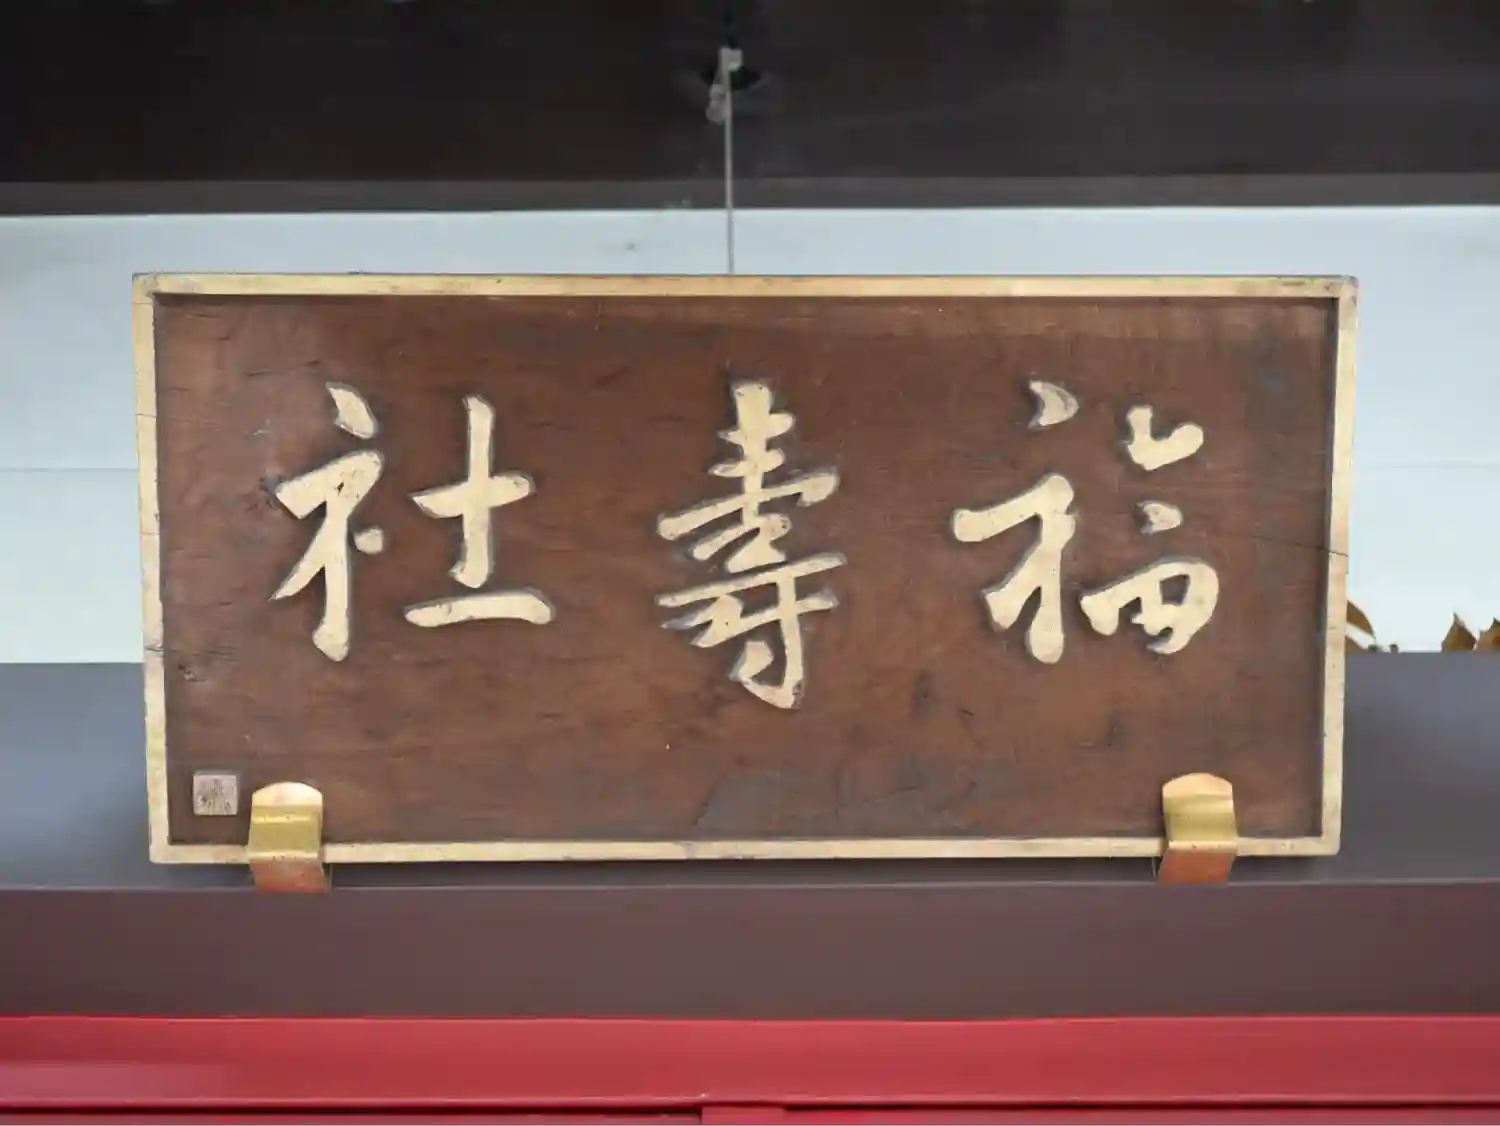 福壽社